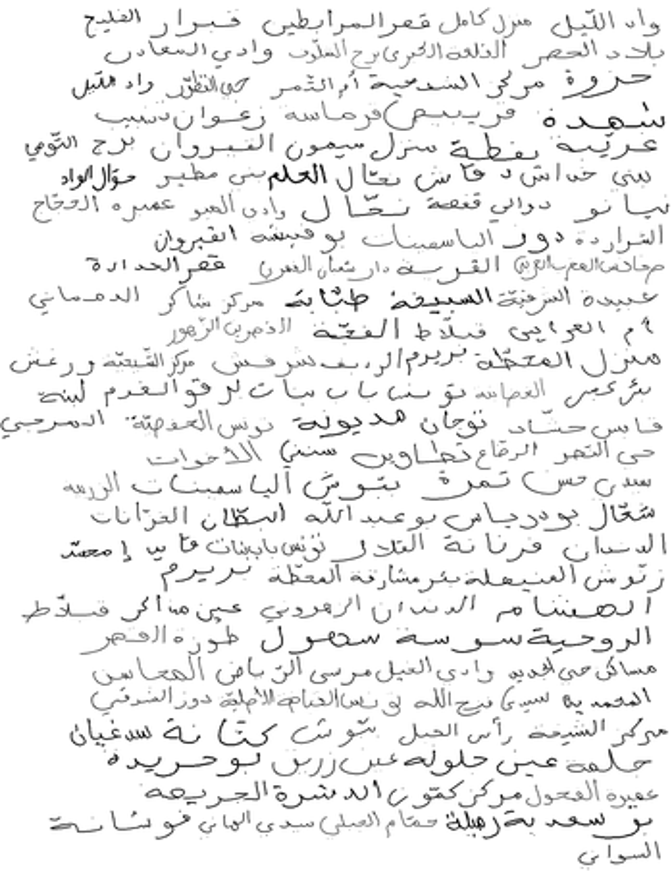 واد اللّيل منزل كامل قصر المرابطين قبرار الفليج
بلاد الحضر القلعة الكبرى برج السلوم وادي المعادن
حزوة مركز الشعبية أم الثمر حي التطوّر واد مليل
شهدة فريبيص قرماسة زعوان تشيب
عريبة نفطة منزل ميمون القيروان برج التّومي
بني خداش دقاش نحّال العلم بني مطير حوّال الواد
نيانو دوالي قفصة نحّال وادي الصبو عميره الحجّاج
الشراردة دوز الياسمينات بوفيشة القيروان
القرية دار شعبان الفهري قصر الحدادة
عبيدة الشرقيّة السبيخة طبّابة مركز شاكر الدهماني
أم العرايس قبلّاط الفجّة القصرين الزّهور
منزل المحطّة بريرم الريف شرقش مركز الشيحيّة ورغش
توسنا باب بنات لرقو القدم لبنة
قابس حشّاد توجان مديونة تونس الحفصيّة المرجي
حي النصر الرقاع تطاوين سنني الأخوات
سيدي حسن تمرة بتوش الياسمينات الزريبة
شعّال بودرياس بوعبد الله السطان الغزالات
الدندان فرنانة التلالز تونس باب بنات قابس إمحمّد
زتوش المنيهلة بئر مشارقة المحطّة بريرم
الهشامم الدندان الزهروني عين مذاكر قبلّاط
الروحية سوسة سهول طوزة القصر
مساكن حي الجديد وادي الغيل مرسى الرّياض المحاسن
المحمدية سيدي فتح الله تونس القباضة الأصليّة دوز الشرقي
مركز الشيخة رأس الجبل بتوش كتّانة سدغيان
جلمة عين جلولة عين زريق بوجريدة
عميرة الفحول مركز كمّون الدشرة الجريصة
بو سعدية رميلة حمّام الجبلي سيدي الهاني فوشانة
السواني